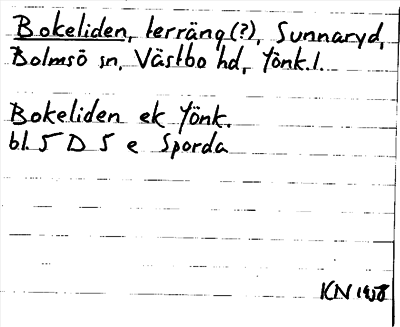 Bokeliden, terräng (?), Sunnaryd,
Bolmsö sn, Västbo hd, Jönk. l.
Bokeliden ek Jönk.
bl. 5 D 5 e Sporda
KN